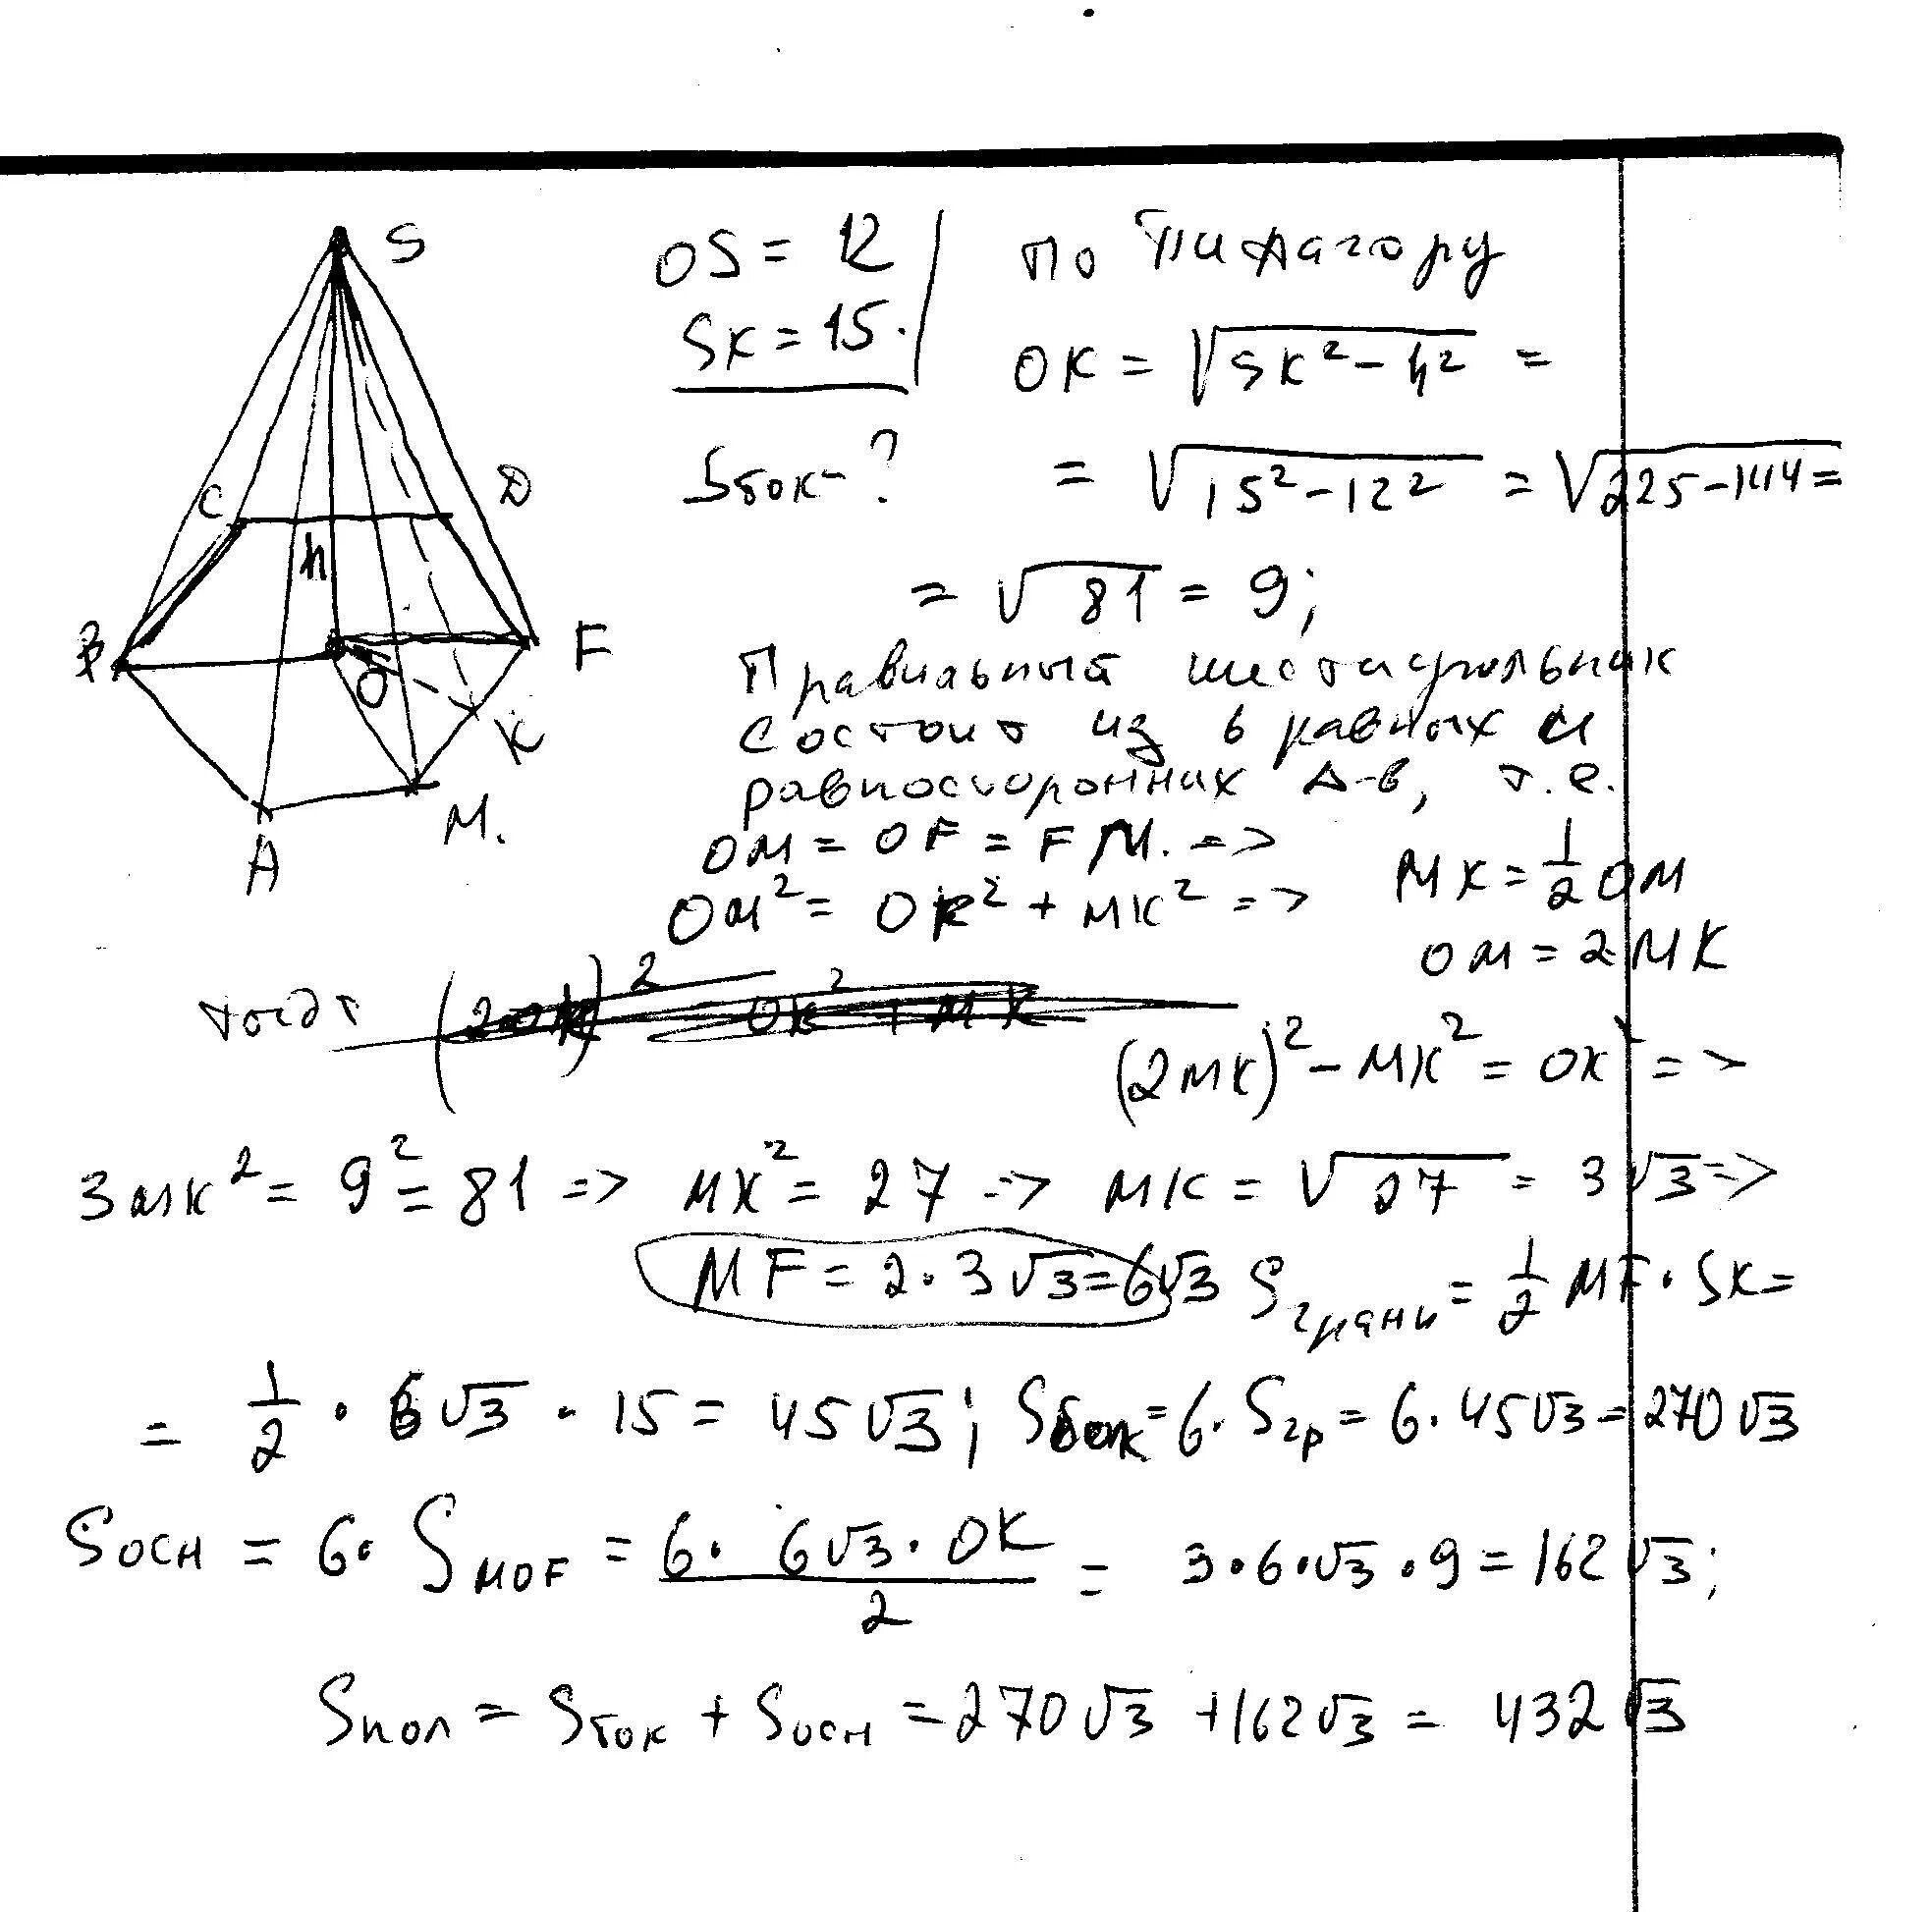 S
OS = 12
SK = 15.
По Пифагору
OK = √SK² - h² =
Sбок - ?
= √15² - 12² = √225 - 144 =
C
D
h
= √81 = 9;
B
F
O
K
A
M.
Правильный шестиугольник
состоит из 6 равных и
равносторонних Δ-в, т.е.
OM = OF = FM. =>
MK = 1/2 OM
OM² = OK² + MK² =>
OM = 2MK
тогда
(2MK)² - MK² = OK² =>
3MK² = 9² = 81 => MK² = 27 => MK = √27 = 3√3 =>
MF = 2·3√3 = 6√3 Sграни = 1/2 MF · SK =
= 1/2 · 6√3 · 15 = 45√3; Sбок = 6·Sгр = 6·45√3 = 270√3
Sосн = 6·S MOF = 6·6√3·OK/2 = 3·6·√3·9 = 162√3;
Sпол = Sбок + Sосн = 270√3 + 162√3 = 432√3